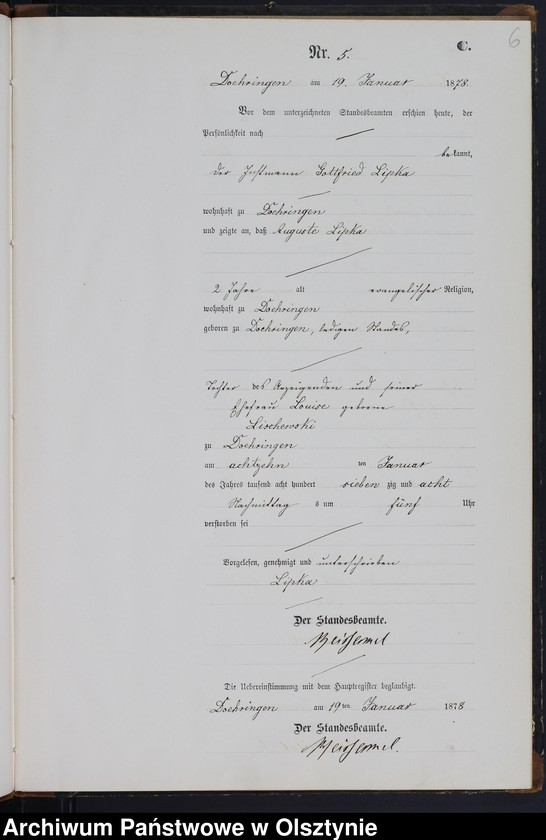 6
C.
Nr. 5.
Doehringen am 19. Januar 1878.
Vor dem unterzeichneten Standesbeamten erschien heute, der
Persönlichkeit nach
bekannt,
der Instmann Gottfried Lipka
wohnhaft zu Doehringen
und zeigte an, daß Auguste Lipka
2 Jahre alt evangelischer Religion,
wohnhaft zu Doehringen
geboren zu Doehringen, ledigen Standes,
Tochter des Anzeigenden und seiner
Ehefrau Louise geborene
Lischewski
zu Doehringen
am achtzehn ten Januar
des Jahres tausend acht hundert sieben zig und acht
Nachmittag s um fünf Uhr
verstorben sei
Vorgelesen, genehmigt und unterschrieben
Lipka
Der Standesbeamte.
Die Uebereinstimmung mit dem Hauptregister beglaubigt.
Doehringen am 19ten Januar 1878
Der Standesbeamte.
Archiwum Państwowe w Olsztynie